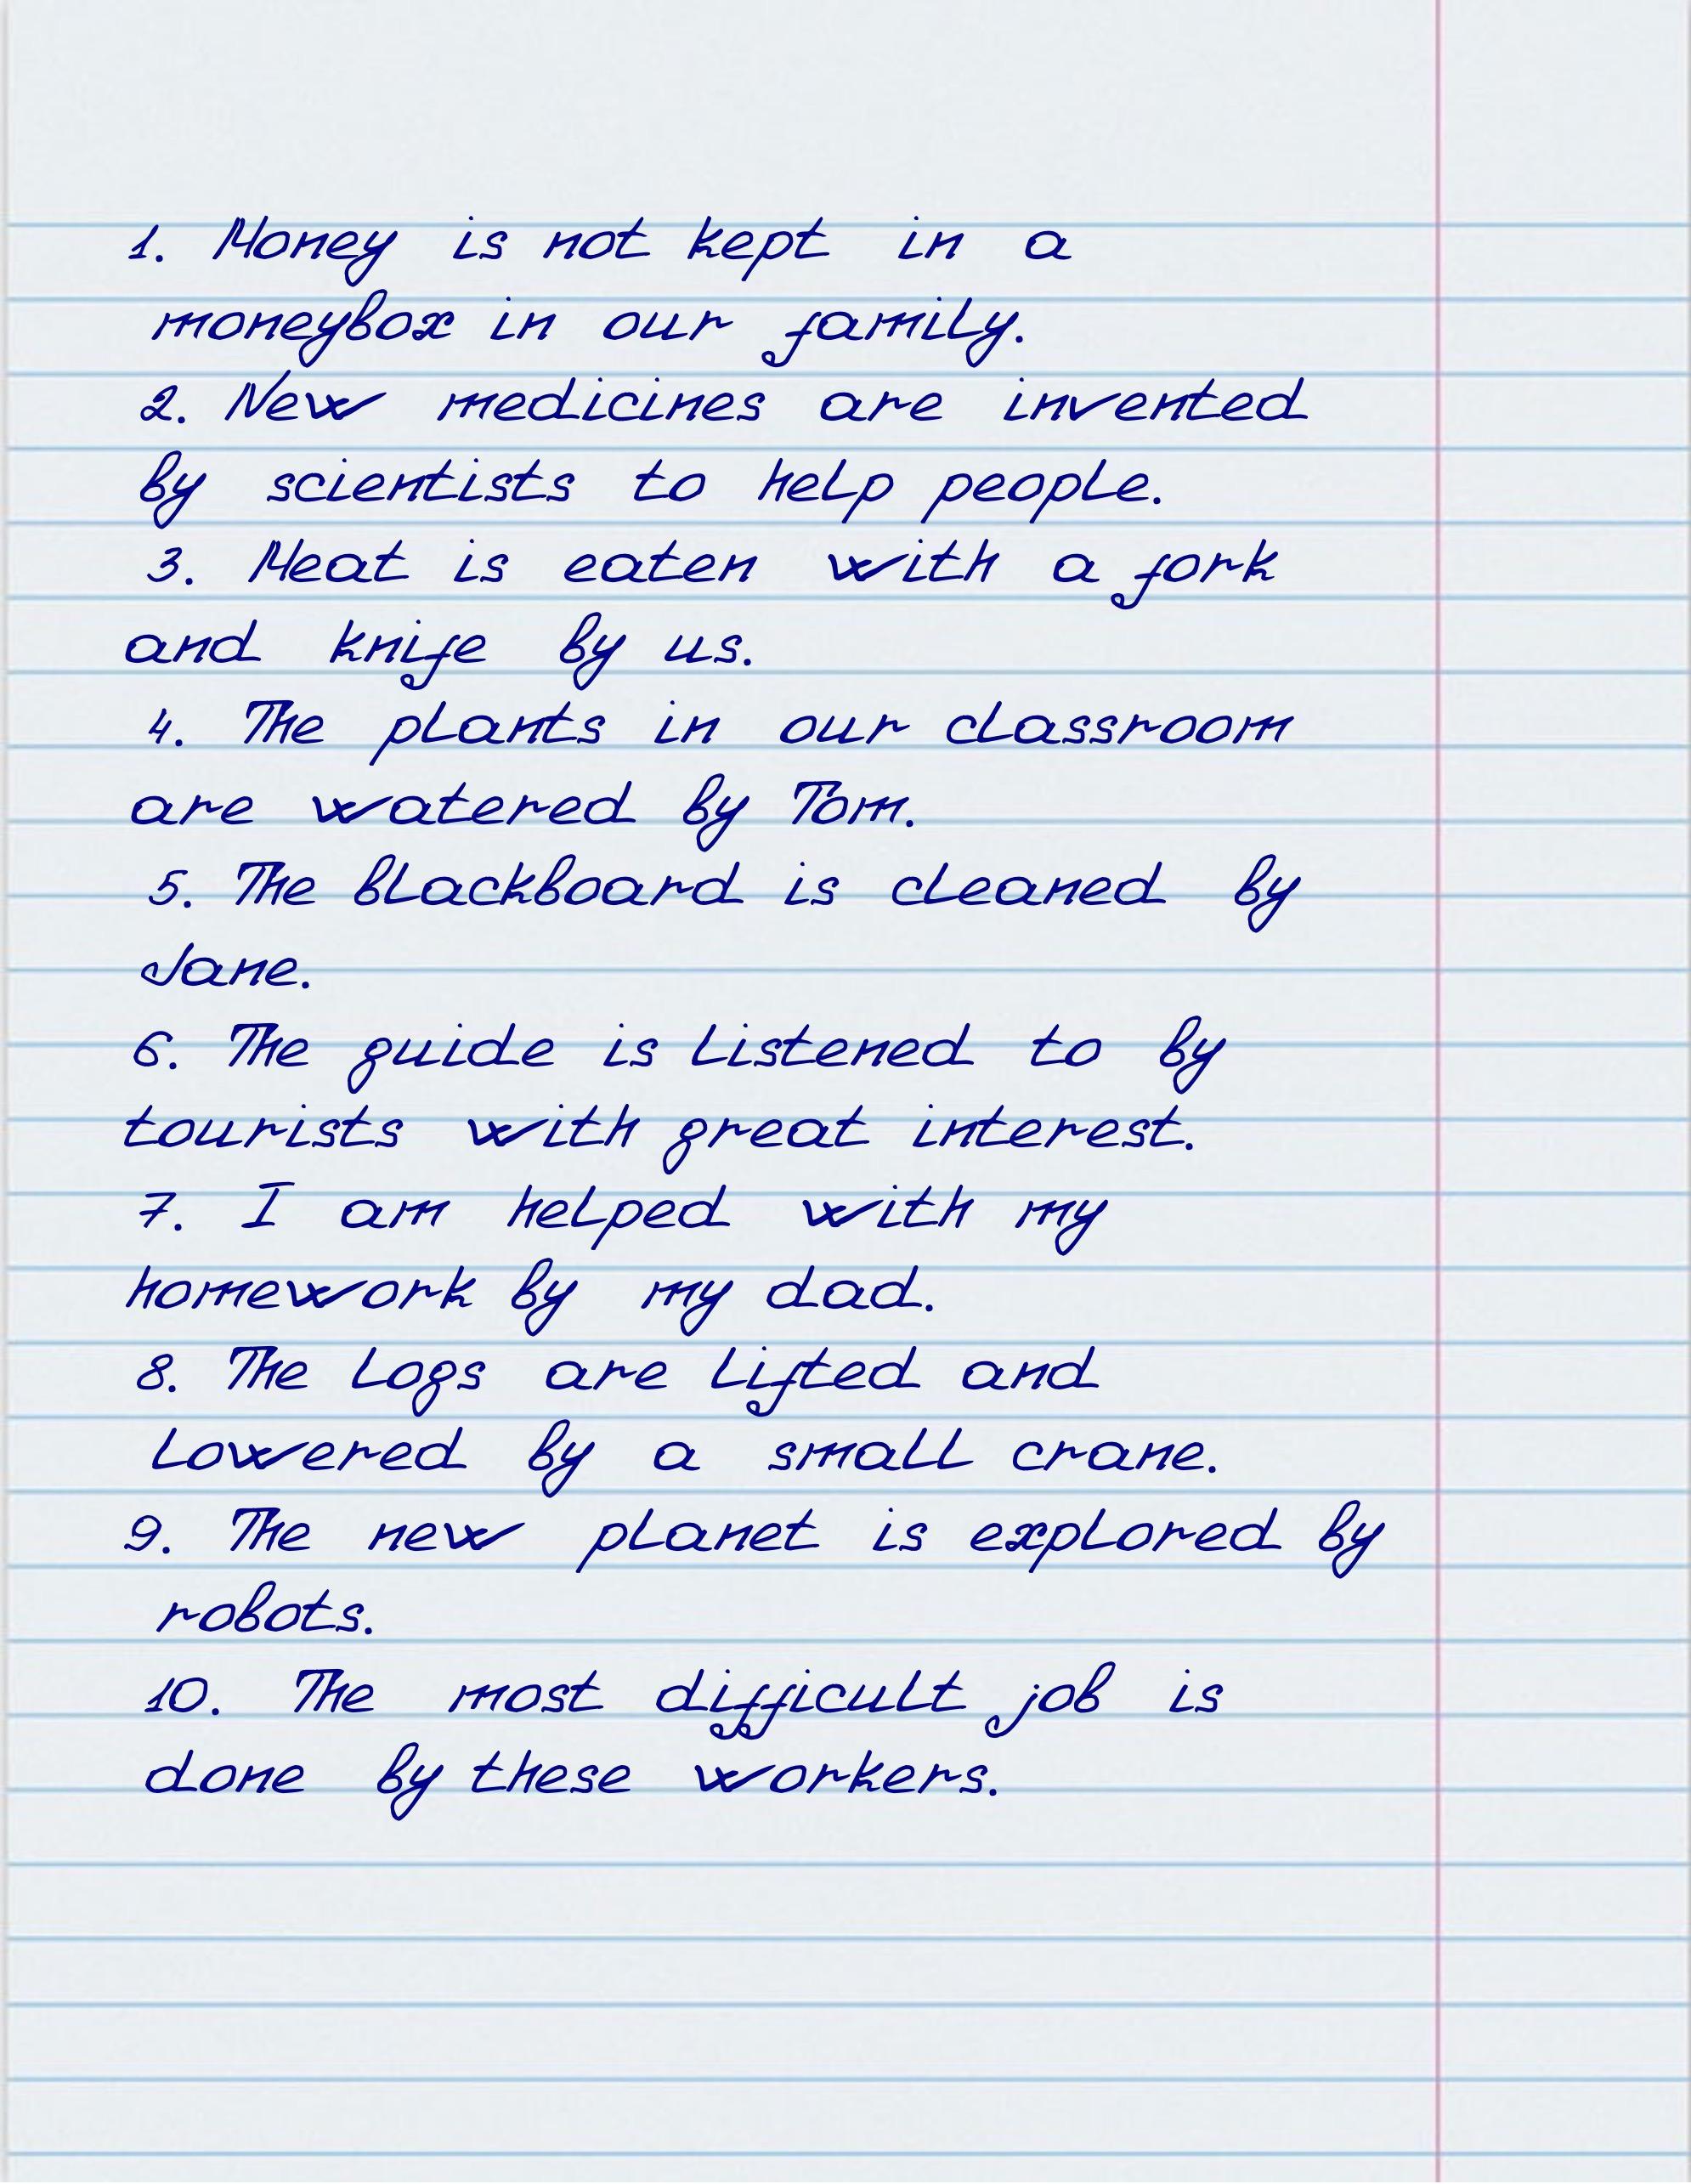 1. Money is not kept in a
moneybox in our family.
2. New medicines are invented
by scientists to help people.
3. Meat is eaten with a fork
and knife by us.
4. The plants in our classroom
are watered by Tom.
5. The blackboard is cleaned by
Jane.
6. The guide is listened to by
tourists with great interest.
7. I am helped with my
homework by my dad.
8. The logs are lifted and
lowered by a small crane.
9. The new planet is explored by
robots.
10. The most difficult job is
done by these workers.